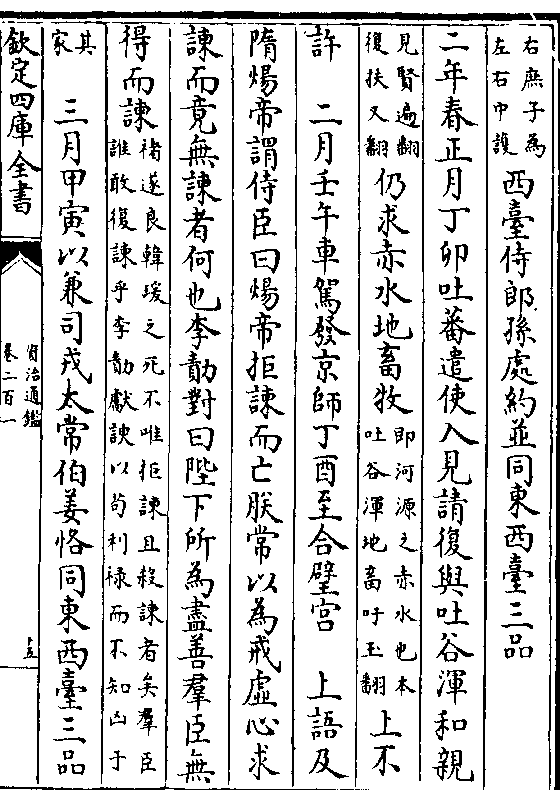 右庶子為
左右中護
西臺侍郎孫處約並同東西臺三品
二年春正月丁卯吐蕃遣使入見請復與吐谷渾和親
見賢遍翻
復扶又翻
仍求赤水地畜牧
即河源之赤水也本
吐谷渾地畜吁玉翻
上不
許　二月壬午車駕發京師丁酉至合璧宮　上語及
隋煬帝謂侍臣曰煬帝拒諫而亡朕常以為戒虛心求
諫而竟無諫者何也李勣對曰陛下所為盡善羣臣無
得而諫
褚遂良韓瑗之死不唯拒諫且殺諫者矣羣臣
誰敢復諫乎李勣獻諛以苟利祿而不知凶于
其
家
三月甲寅以兼司戎太常伯姜恪同東西臺三品
欽定四庫全書
資治通鑑
卷二百一
十五